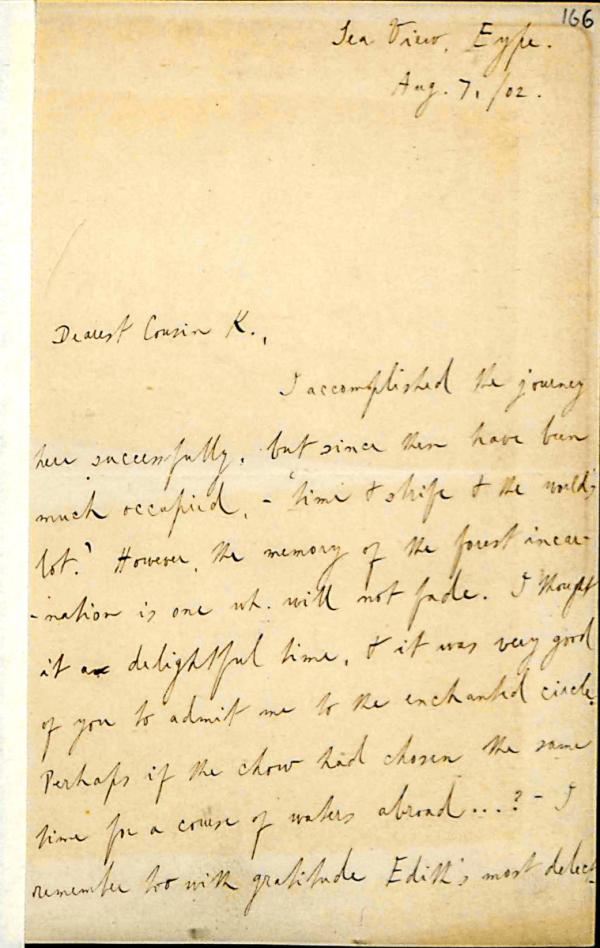 166
Sea View, Eype.
Aug. 7, /02.
Dearest Cousin K.,
I accomplished the journey
here successfully, but since then have been
much occupied, - 'time & strife & the world's
lot.' However, the memory of the forest incar-
-nation is one wh. will not fade. I thought
it a delightful time, & it was very good
of you to admit me to the enchanted circle.
Perhaps if the chow had chosen the same
time for a course of waters abroad...? - I
remember too with gratitude Edith's most delect-